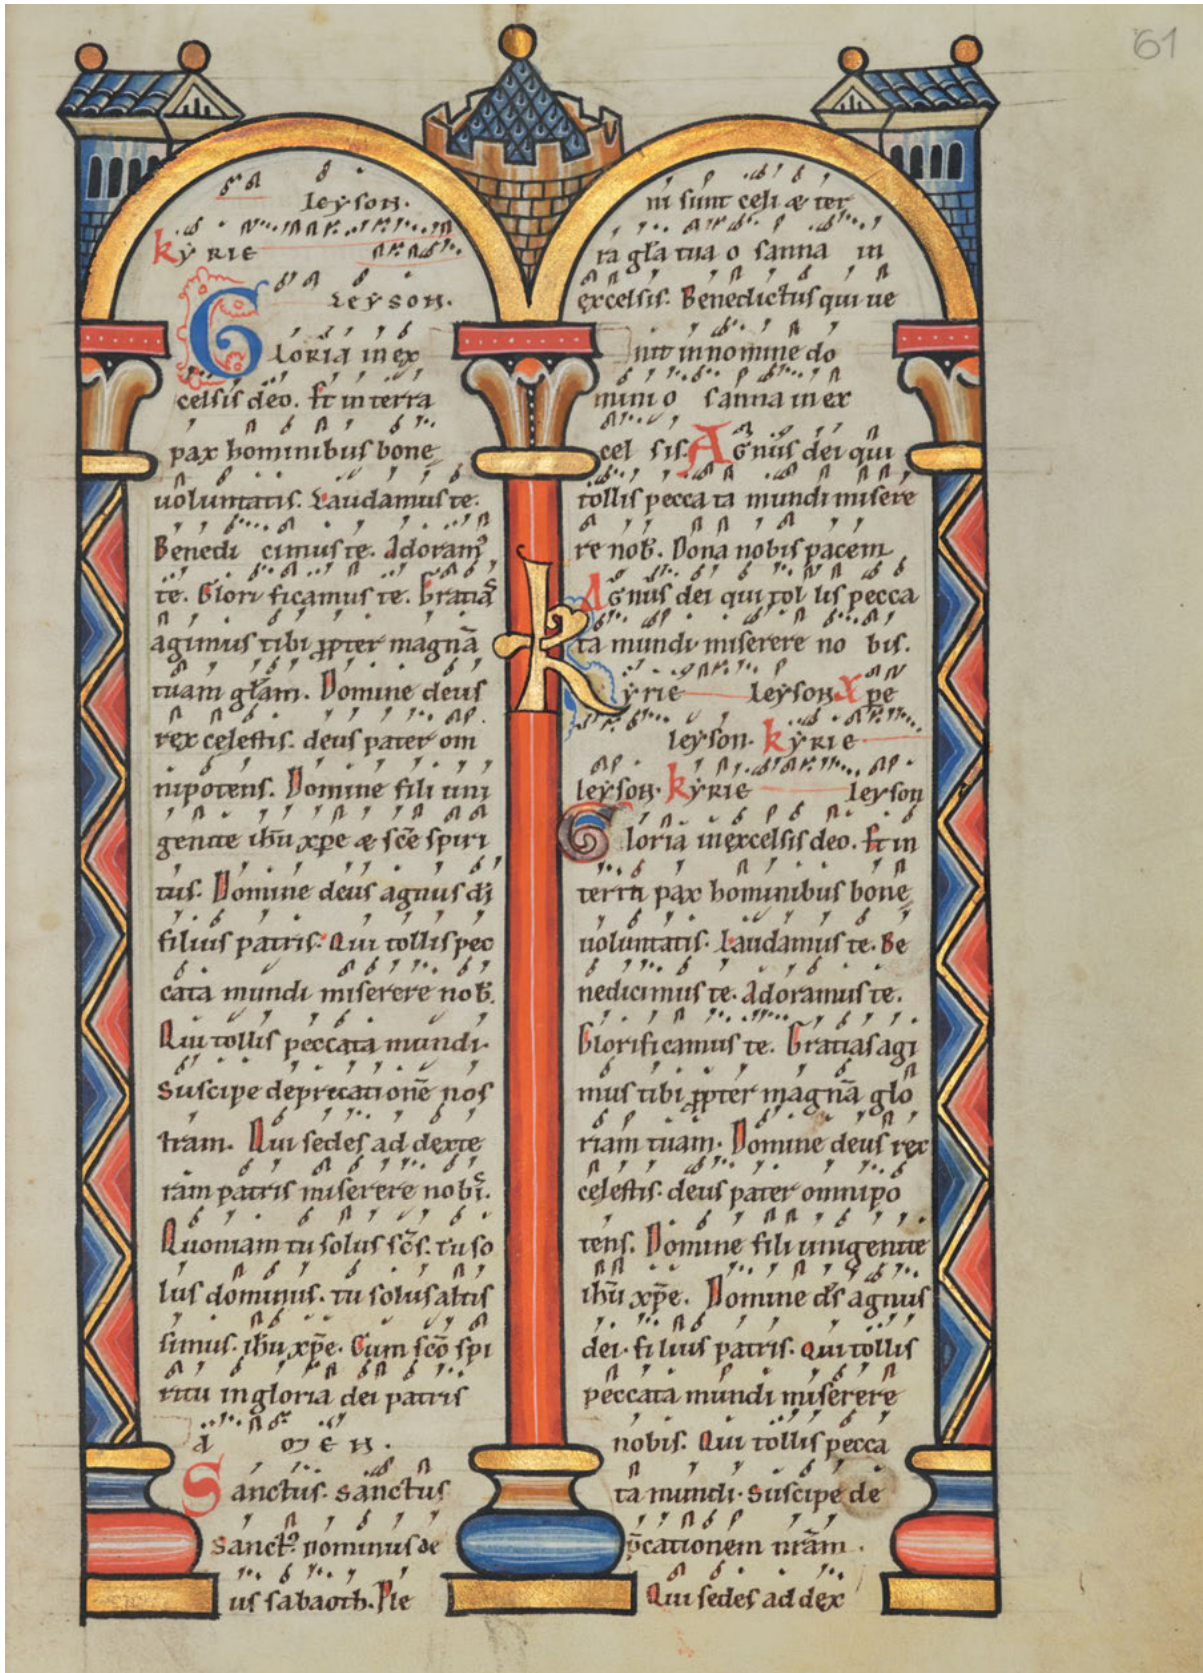 61
leyson.
kẏRIE
Leyson.
GLORIA in ex
celsis deo. Et in terra
pax hominibus bone
uoluntatis. Laudamus te.
Benedi cimus te. Adoram᷒
te. Glori ficamus te. Gratias
agimus tibi ꝓpter magnā
tuam gl̄am. Domine deus
rex celestis. deus pater om
nipotens. Domine fili uni
genite ihū xp̄e & sc̄e spiri
tus. Domine deus agnus di
filius patris. Qui tollis pec
cata mundi miserere nob̄.
Qui tollis peccata mundi.
Suscipe deprecationē nos
tram. Qui sedes ad dexte
ram patris miserere nobis.
Quoniam tu solus sc̄s. tu so
lus dominus. tu solus altis
simus. ihū xp̄e. Cum sc̄o spi
ritu in gloria dei patris
A MEN.
Sanctus. Sanctus
Sanct᷒ dominus de
us sabaoth. Ple
ni sunt celi & ter
ra gl̄a tua o sanna in
excelsis. Benedictus qui ue
nit in nomine do
mini o sanna in ex
cel sis. Agnus dei qui
tollis pecca ta mundi misere
re nob̄. Dona nobis pacem
Agnus dei qui tol lis pecca
ta mundi miserere no bis.
kyrie leyson xpe
leyson. kẏRIE
leyson. kẏRIE leyson
Gloria in excelsis deo. Et in
terra pax hominibus bone
uoluntatis. Laudamus te. Be
nedicimus te. Adoramus te.
Glorificamus te. Gratias agi
mus tibi ꝓpter magnā glo
riam tuam. Domine deus rex
celestis. deus pater omnipo
tens. Domine fili unigenite
ihū xp̄e. Domine ds̄ agnus
dei. filius patris. Qui tollis
peccata mundi miserere
nobis. Qui tollis pecca
ta mundi. Suscipe de
p̄cationem nr̄am.
Qui sedes ad dex